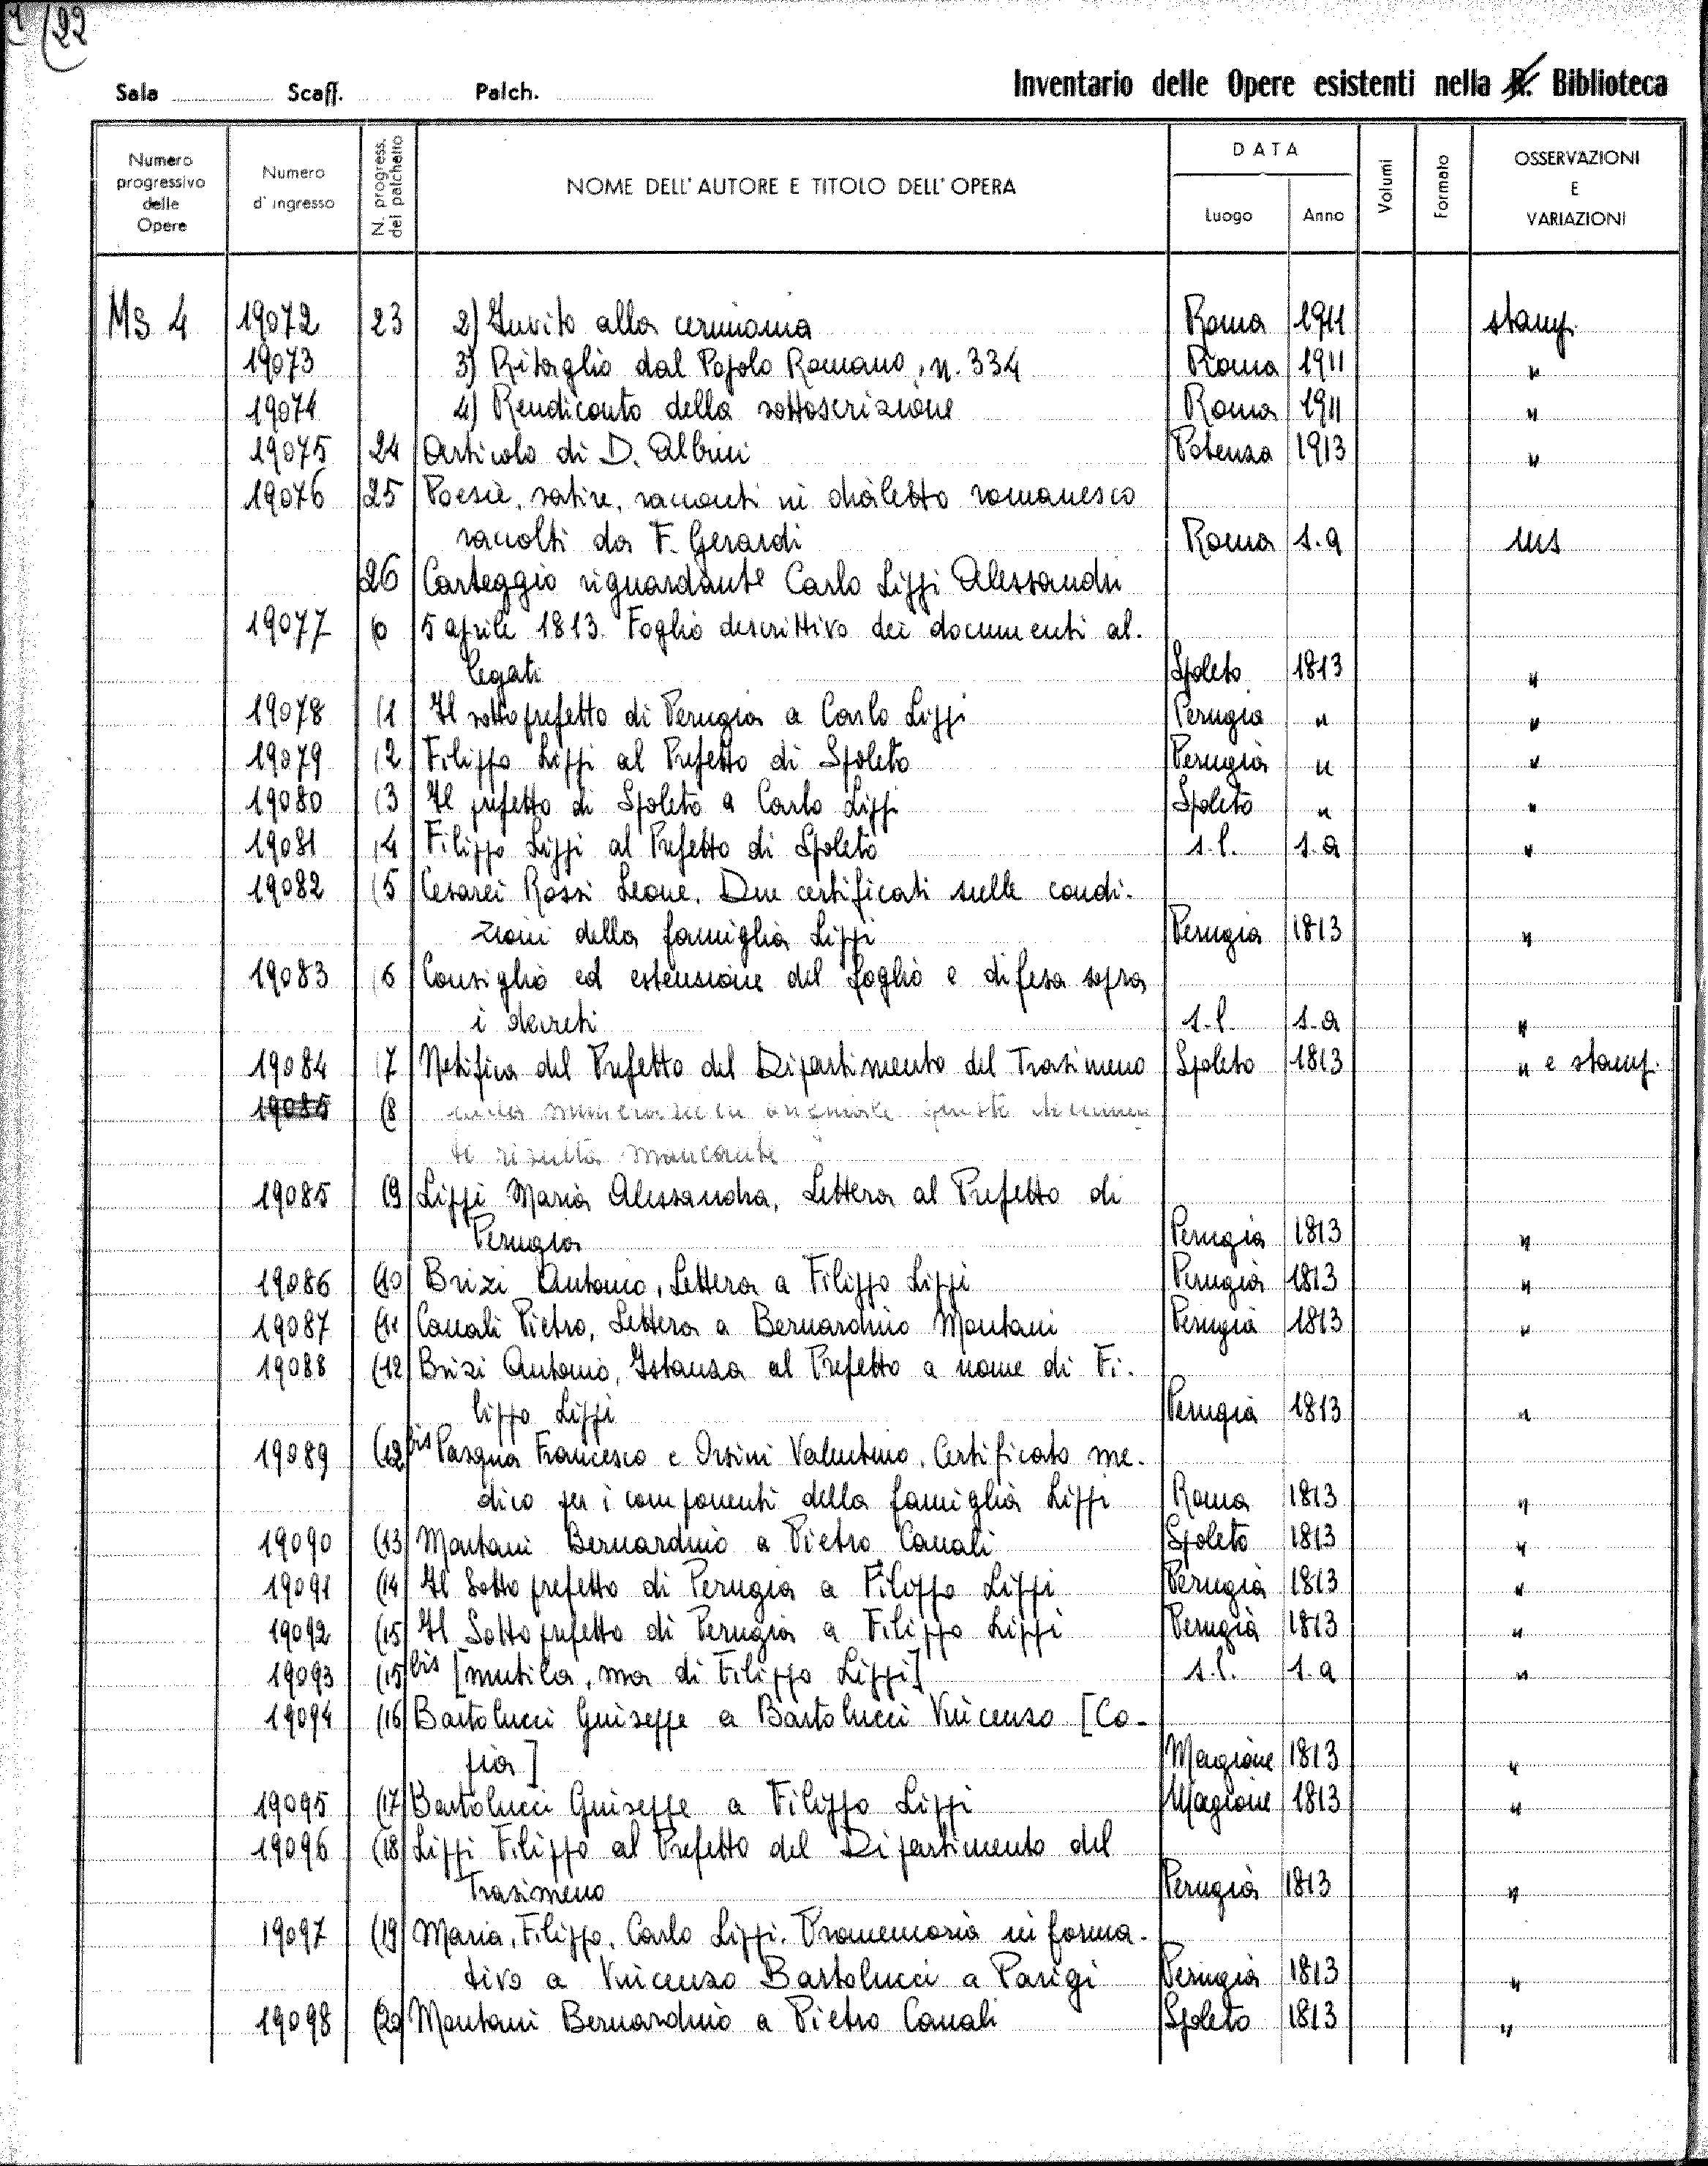 4/22
Sala Scaff. Palch. Inventario delle Opere esistenti nella R. Biblioteca
Numero progressivo delle Opere | Numero d'ingresso | N. progress. del palchetto | NOME DELL'AUTORE E TITOLO DELL'OPERA | DATA Luogo Anno | Volumi | Formato | OSSERVAZIONI E VARIAZIONI
Ms 4 19072 23 2) Invito alla cerimonia Roma 1911 stamp.
19073 3) Ritaglio dal Popolo Romano, n. 334 Roma 1911 "
19074 4) Rendiconto della sottoscrizione Roma 1911 "
19075 24 Articolo di D. Albini Potenza 1913 "
19076 25 Poesie, satire, racconti in dialetto romanesco
raccolti da F. Gerardi Roma s.a ms
26 Carteggio riguardante Carlo Lippi Alessandri
19077 (0 5 aprile 1813. Foglio descrittivo dei documenti al-
legati Spoleto 1813 "
19078 (1 Il sottoprefetto di Perugia a Carlo Lippi Perugia " "
19079 (2 Filippo Lippi al Prefetto di Spoleto Perugia " "
19080 (3 Il prefetto di Spoleto a Carlo Lippi Spoleto " "
19081 (4 Filippo Lippi al Prefetto di Spoleto s.l. s.a "
19082 (5 Cesarei Rossi Leone. Due certificati sulle condi-
zioni della famiglia Lippi Perugia 1813 "
19083 (6 Consiglio ed estensione del foglio e difesa sopra
i decreti s.l. s.a "
19084 (7 Notifica del Prefetto del Dipartimento del Trasimeno Spoleto 1813 " e stamp.
19085 (8 numerazione originale questo documen
to risulta mancante
19085 (9 Lippi Maria Alessandra, Lettera al Prefetto di
Perugia Perugia 1813 "
19086 (10 Brizi Antonio, Lettera a Filippo Lippi Perugia 1813 "
19087 (11 Canali Pietro, Lettera a Bernardino Montani Perugia 1813 "
19088 (12 Brizi Antonio, Istanza al Prefetto a nome di Fi-
lippo Lippi Perugia 1813 "
19089 (12 bis Pasqua Francesco e Orsini Valentino. Certificato me-
dico per i componenti della famiglia Lippi Roma 1813 "
19090 (13 Montani Bernardino a Pietro Canali Spoleto 1813 "
19091 (14 Il Sottoprefetto di Perugia a Filippo Lippi Perugia 1813 "
19092 (15 Il Sottoprefetto di Perugia a Filippo Lippi Perugia 1813 "
19093 (15 bis [mutila, ma di Filippo Lippi] s.l. s.a "
19094 (16 Bartolucci Giuseppe a Bartolucci Vincenzo [Co-
pia] Magione 1813 "
19095 (17 Bartolucci Giuseppe a Filippo Lippi Magione 1813 "
19096 (18 Lippi Filippo al Prefetto del Dipartimento del
Trasimeno Perugia 1813 "
19097 (19 Maria, Filippo, Carlo Lippi. Promemoria informa-
tivo a Vincenzo Bartolucci a Parigi Perugia 1813 "
19098 (20 Montani Bernardino a Pietro Canali Spoleto 1813 "